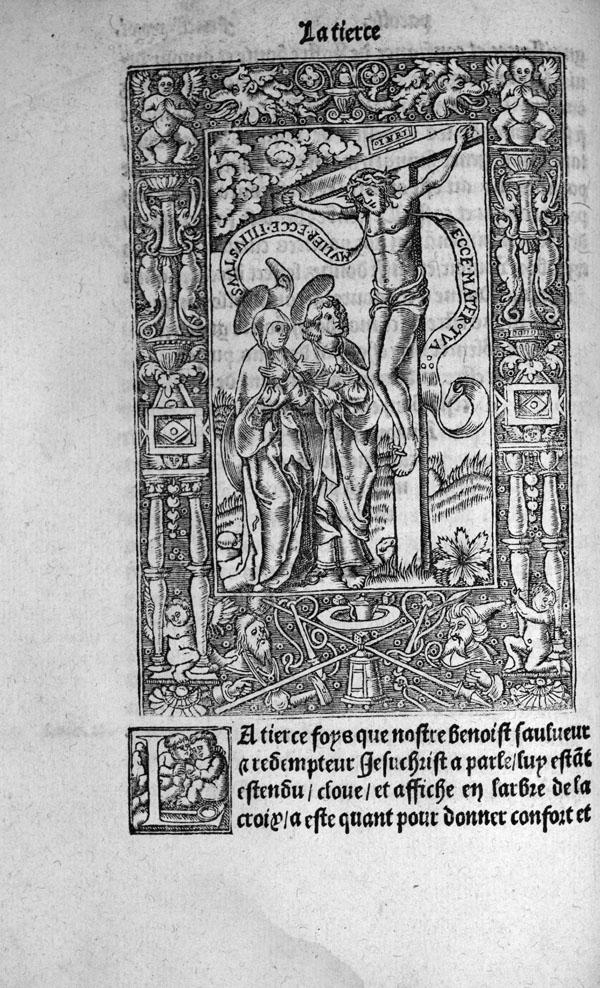 La tierce
INRI
MVLIER·ECCE·
ECCE·MATER·TVA
LA tierce foys que nostre benoist saulueur
& redempteur Jesuchrist a parle/luy estãt
estendu/cloue/et affiche en larbre de la
croix/a este quant pour donner confort et